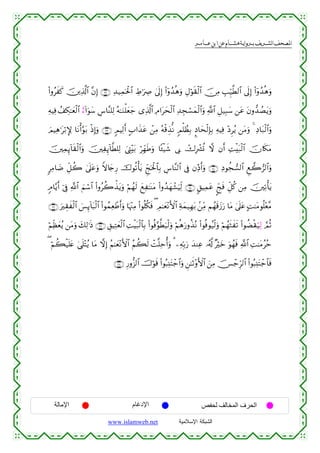 المصحف الشريف برواية هشام عن ابن عامر
وَهُدُوٓا۟ إِلَى ٱلطَّيِّبِ مِنَ ٱلْقَوْلِ وَهُدُوٓا۟ إِلَىٰ صِرَٰطِ ٱلْحَمِيدِ ۝ إِنَّ ٱلَّذِينَ كَفَرُوا۟
وَيَصُدُّونَ عَن سَبِيلِ ٱللَّهِ وَٱلْمَسْجِدِ ٱلْحَرَامِ ٱلَّذِى جَعَلْنَٰهُ لِلنَّاسِ سَوَآءٌ ٱلْعَٰكِفُ فِيهِ
وَٱلْبَادِ ۚ وَمَن يُرِدْ فِيهِ بِإِلْحَادٍۭ بِظُلْمٍ نُّذِقْهُ مِنْ عَذَابٍ أَلِيمٍ ۝ وَإِذْ بَوَّأْنَا لِإِبْرَٰهِيمَ
مَكَانَ ٱلْبَيْتِ أَن لَّا تُشْرِكْ بِى شَيْـًٔا وَطَهِّرْ بَيْتِىَ لِلطَّآئِفِينَ وَٱلْقَآئِمِينَ
وَٱلرُّكَّعِ ٱلسُّجُودِ ۝ وَأَذِّن فِى ٱلنَّاسِ بِٱلْحَجِّ يَأْتُوكَ رِجَالًا وَعَلَىٰ كُلِّ ضَامِرٍ
يَأْتِينَ مِن كُلِّ فَجٍّ عَمِيقٍ ۝ لِّيَشْهَدُوا۟ مَنَٰفِعَ لَهُمْ وَيَذْكُرُوا۟ ٱسْمَ ٱللَّهِ فِىٓ أَيَّامٍ
مَّعْلُومَٰتٍ عَلَىٰ مَا رَزَقَهُم مِّنۢ بَهِيمَةِ ٱلْأَنْعَٰمِ ۖ فَكُلُوا۟ مِنْهَا وَأَطْعِمُوا۟ ٱلْبَآئِسَ ٱلْفَقِيرَ ۝
ثُمَّ لِيَقْضُوا۟ تَفَثَهُمْ وَلْيُوفُوا۟ نُذُورَهُمْ وَلْيَطَّوَّفُوا۟ بِٱلْبَيْتِ ٱلْعَتِيقِ ۝ ذَٰلِكَ وَمَن يُعَظِّمْ
حُرُمَٰتِ ٱللَّهِ فَهُوَ خَيْرٌ لَّهُۥ عِندَ رَبِّهِۦ ۗ وَأُحِلَّتْ لَكُمُ ٱلْأَنْعَٰمُ إِلَّا مَا يُتْلَىٰ عَلَيْكُمْ ۖ
فَٱجْتَنِبُوا۟ ٱلرِّجْسَ مِنَ ٱلْأَوْثَٰنِ وَٱجْتَنِبُوا۟ قَوْلَ ٱلزُّورِ ۝
الحرف المخالف لحفص الإدغام الإمالة
الشبكة الإسلامية www.islamweb.net